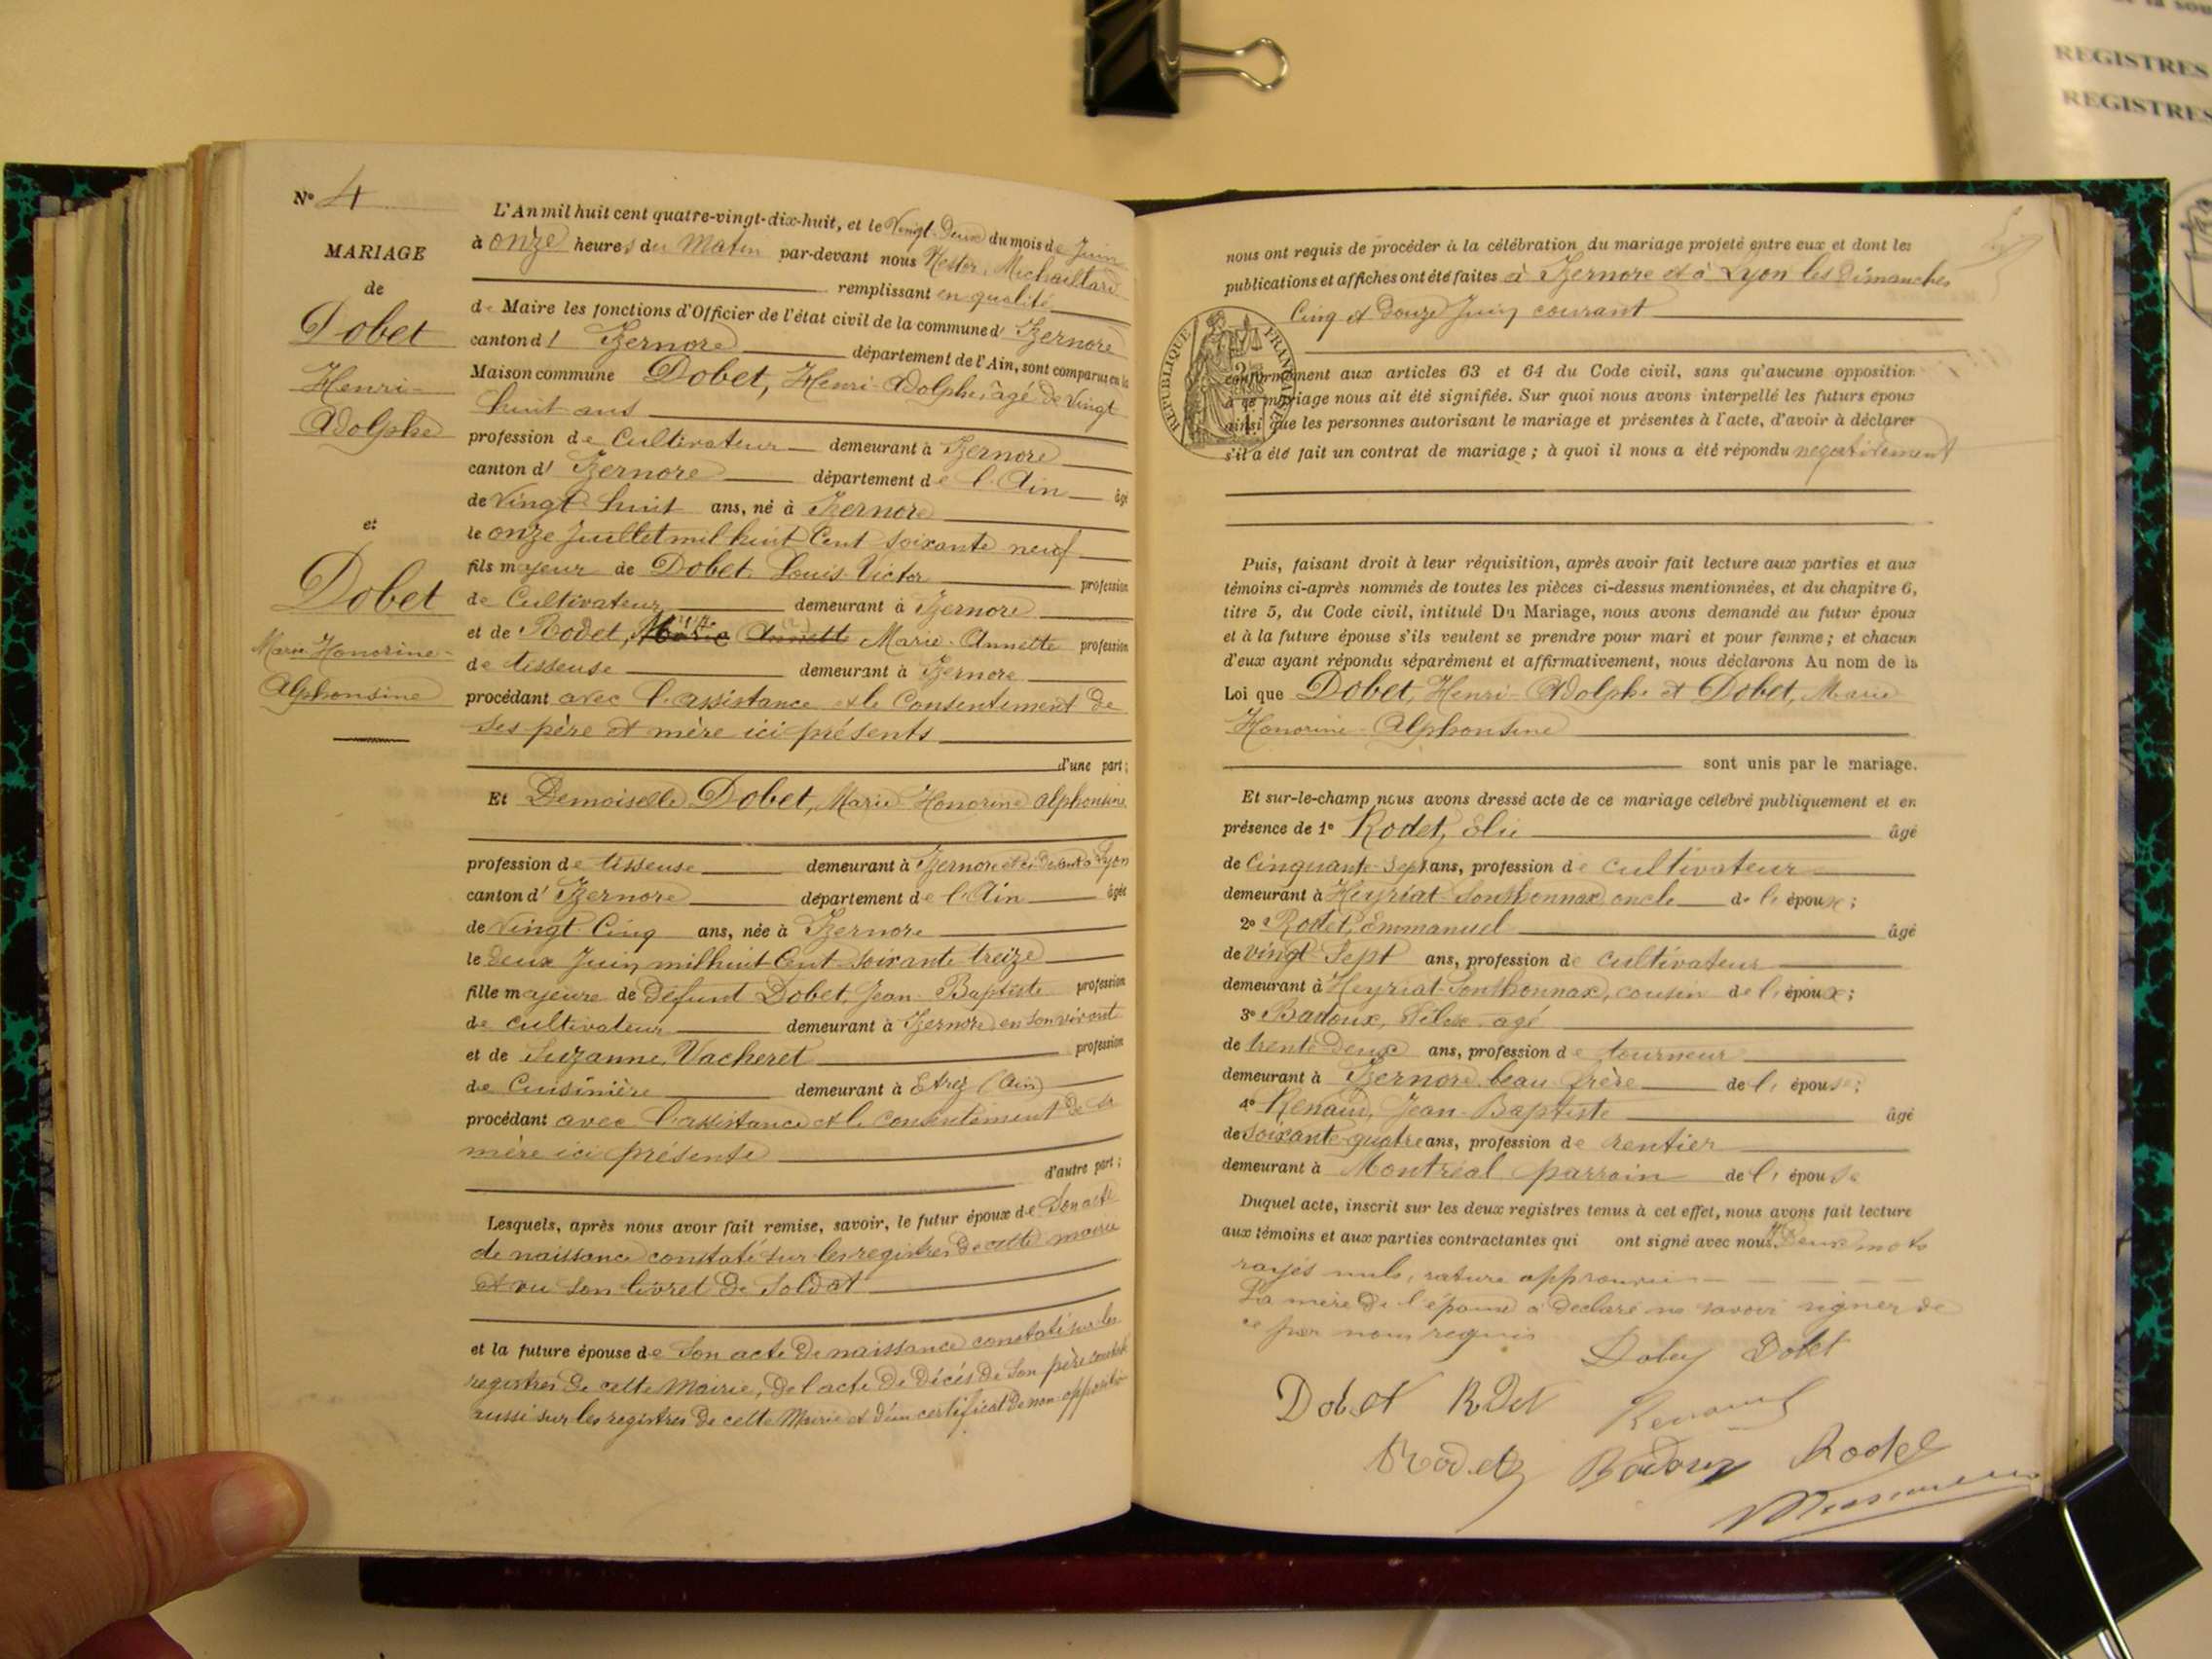 N° 4
MARIAGE
de
Dobet
Henri-
Adolphe
et
Dobet
Marie Honorine-
Alphonsine
L'An mil huit cent quatre-vingt-dix-huit, et le Vingt-Deux du mois de Juin
à onze heures du Matin par-devant nous Nestor, Michaillard
remplissant en qualité
de Maire les fonctions d'Officier de l'état civil de la commune d' Izernore
canton d' Izernore département de l'Ain, sont comparus en la
Maison commune Dobet, Henri-Adolphe, âgé de Vingt
huit ans
profession de Cultivateur demeurant à Izernore
canton d' Izernore département de l'Ain âgé
de Vingt huit ans, né à Izernore
le onze Juillet mil huit Cent soixante neuf
fils majeur de Dobet, Louis-Victor profession
de Cultivateur demeurant à Izernore
et de Rodet, Marie Annette Marie-Annette profession
de tisseuse demeurant à Izernore
procédant avec l'assistance et le Consentement de
ses père et mère ici présents
d'une part;
Et Demoiselle Dobet, Marie Honorine Alphonsine
profession de tisseuse demeurant à Izernore et ci devant à Lyon
canton d' Izernore département de l'Ain âgée
de Vingt-Cinq ans, née à Izernore
le deux Juin mil huit Cent soixante treize
fille majeure de défunt Dobet, Jean-Baptiste profession
de cultivateur demeurant à Izernore en son vivant
et de Suzanne Vacheret profession
de Cuisinière demeurant à Etrez (Ain)
procédant avec l'assistance et le consentement de sa
mère ici présente
d'autre part;
Lesquels, après nous avoir fait remise, savoir, le futur époux de Son acte
de naissance constaté sur les registres de cette mairie
et vu son livret de Soldat
et la future épouse de Son acte de naissance constaté sur les
registres de cette Mairie, de l'acte de Décès de Son père constaté
aussi sur les registres de cette Mairie et d'un certificat de non-opposition
nous ont requis de procéder à la célébration du mariage projeté entre eux et dont les
publications et affiches ont été faites à Izernore et à Lyon les Dimanches
Cinq et Douze Juin courant
RÉPUBLIQUE FRANÇAISE
conformément aux articles 63 et 64 du Code civil, sans qu'aucune opposition
à ce mariage nous ait été signifiée. Sur quoi nous avons interpellé les futurs époux
ainsi que les personnes autorisant le mariage et présentes à l'acte, d'avoir à déclarer
s'il a été fait un contrat de mariage; à quoi il nous a été répondu négativement
Puis, faisant droit à leur réquisition, après avoir fait lecture aux parties et aux
témoins ci-après nommés de toutes les pièces ci-dessus mentionnées, et du chapitre 6,
titre 5, du Code civil, intitulé Du Mariage, nous avons demandé au futur époux
et à la future épouse s'ils veulent se prendre pour mari et pour femme; et chacun
d'eux ayant répondu séparément et affirmativement, nous déclarons Au nom de la
Loi que Dobet, Henri-Adolphe et Dobet, Marie
Honorine-Alphonsine
sont unis par le mariage.
Et sur-le-champ nous avons dressé acte de ce mariage célébré publiquement et en
présence de 1° Rodet, Elie âgé
de Cinquante-Sept ans, profession de cultivateur
demeurant à Heyriat-Sonthonnax, oncle de l'époux;
2° Rodet, Emmanuel âgé
de vingt-Sept ans, profession de cultivateur
demeurant à Heyriat-Sonthonnax, cousin de l'époux;
3° Badoux, Félix âgé
de trente-Deux ans, profession de tourneur
demeurant à Izernore, beau-frère de l'épouse;
4° Renaud, Jean-Baptiste âgé
de soixante-quatre ans, profession de rentier
demeurant à Montréal parrain de l'épouse
Duquel acte, inscrit sur les deux registres tenus à cet effet, nous avons fait lecture
aux témoins et aux parties contractantes qui ont signé avec nous. Deux mots
rayés nuls, rature approuvée
La mère de l'épouse a déclaré ne savoir signer de
ce par nous requis
Dobet Dobet
Dobet Rodet Renaud
Rodet Badoux Rodet
REGISTRES
REGISTRES